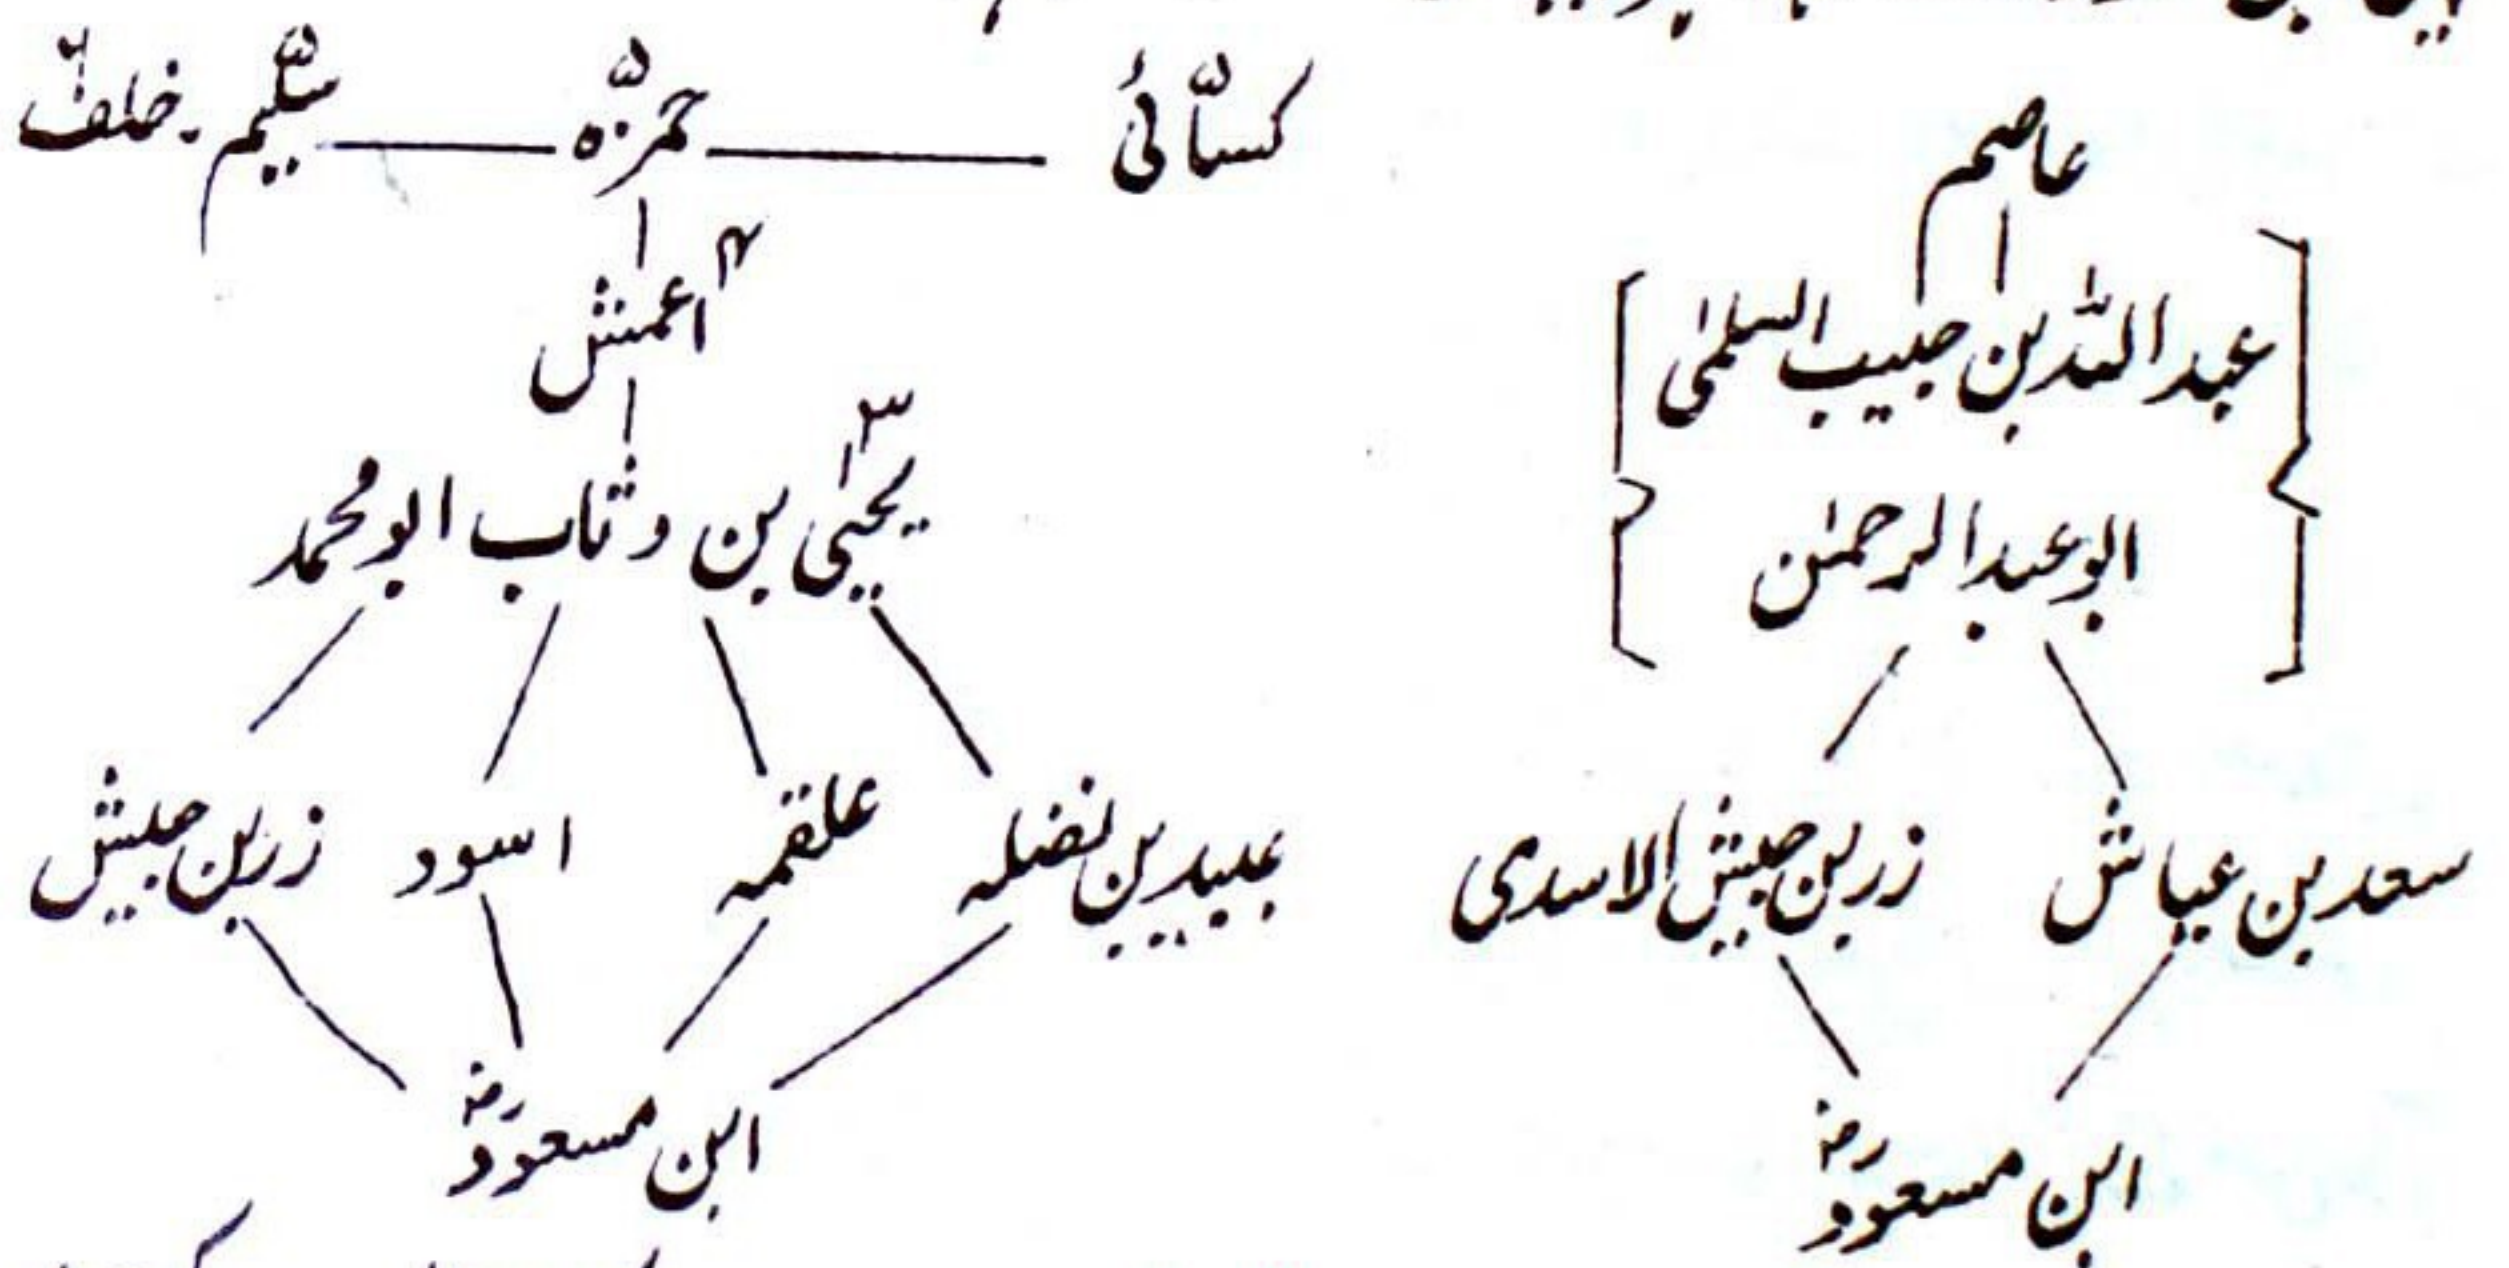 عاصم
عبد اللہ بن حبیب السلمی
ابو عبد الرحمٰن
سعد بن عیاش زر بن حبیش الاسدی
ابن مسعودؓ
کسائی حمزہ سلیم۔خلف
اعمش
یحییٰ بن وثاب ابو محمد
عبید بن نضلہ علقمہ اسود زر بن حبیش
ابن مسعودؓ